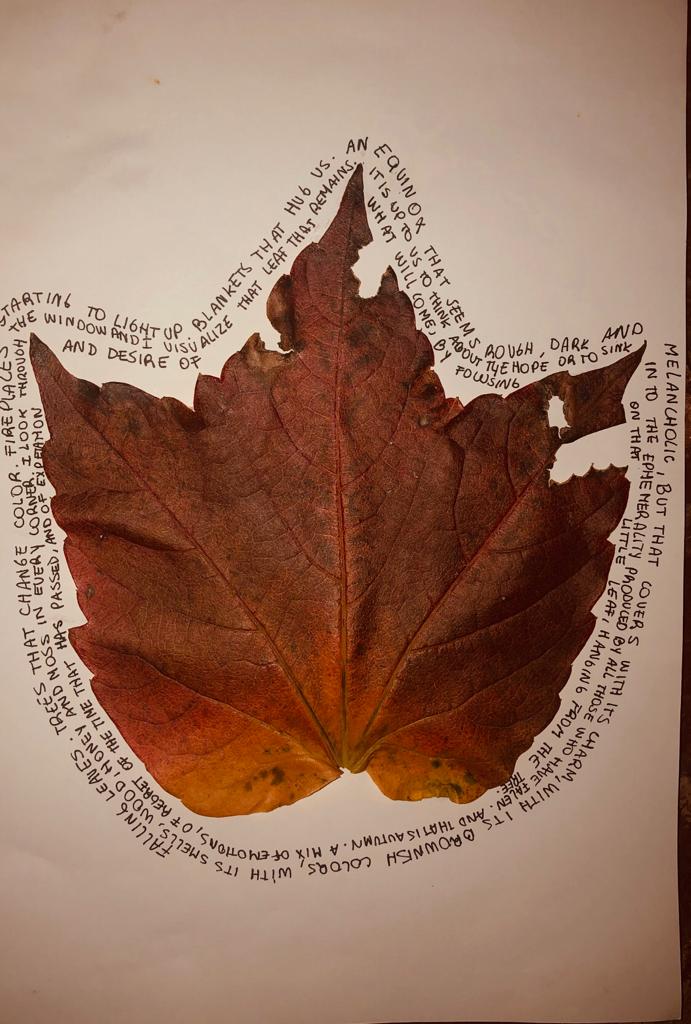 FALLING LEAVES. TREES THAT CHANGE COLOR. FIREPLACES STARTING TO LIGHT UP BLANKETS THAT HUG US. AN EQUINOX THAT SEEMS ROUGH, DARK AND MELANCHOLIC, BUT THAT COVERS WITH ITS CHARM, WITH ITS BROWNISH COLORS, WITH ITS SMELLS, WOOD, HONEY AND NOSS IN EVERY CORNER. I LOOK THROUGH THE WINDOW AND I VISUALIZE THAT LEAF THAT REMAINS. IT IS UP TO US TO THINK ABOUT THE HOPE OR TO SINK IN TO THE EPHEMERALITY PRODUCED BY ALL THOSE WHO HAVE FALEN. AND THAT IS AUTUMN. A MIX OF EMOTIONS, OF REGRET OF THE TIME THAT HAS PASSED, AND OF EXPETATION AND DESIRE OF WHAT WILL COME, BY FOLUSING ON THAT LITTLE LEAF, HANGING FROM THE TREE.